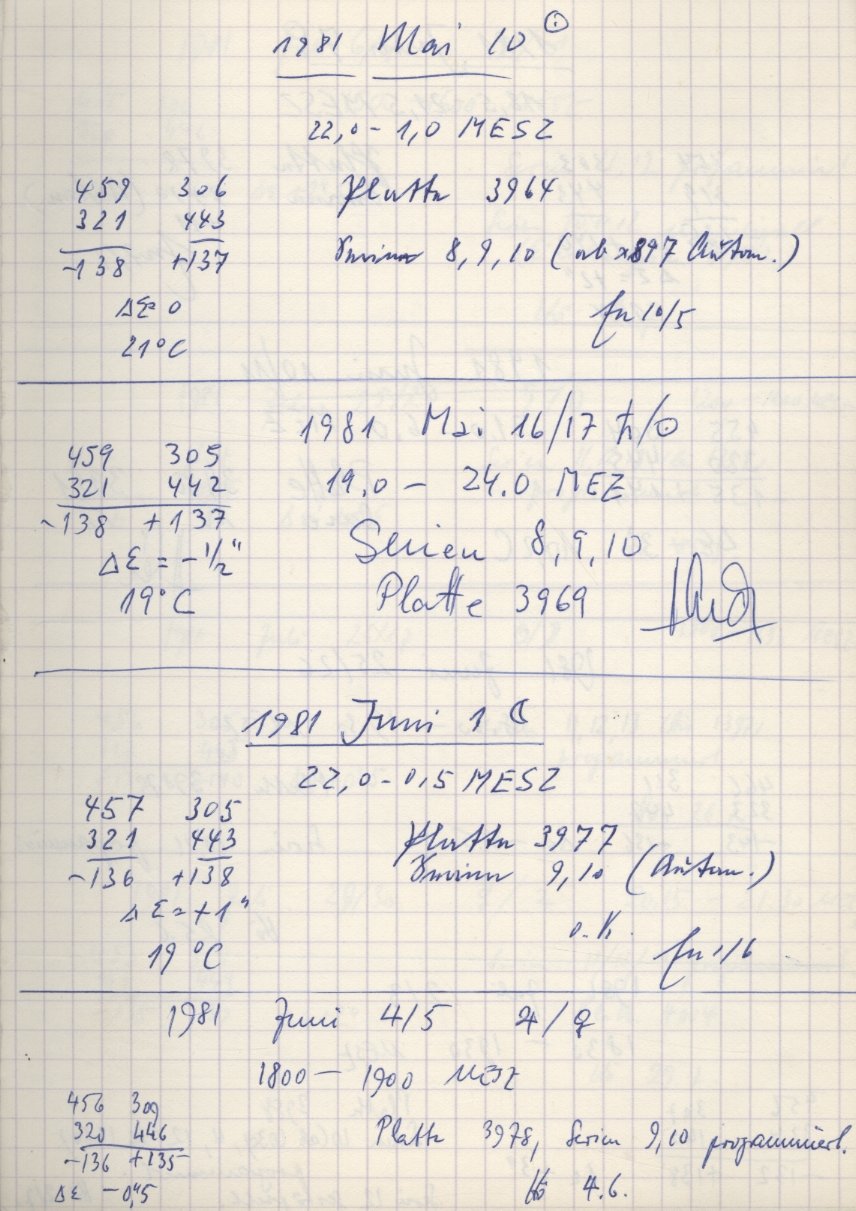 1981 Mai 10 ☉
22,0 - 1,0 MESZ
459 306 Platte 3964
321 443
-138 +137 Serien 8, 9, 10 (ab x897 Autom.)
ΔE = 0
10/5
21°C
1981 Mai 16/17 ♄/☉
459 305
321 442 19.0 - 24.0 MEZ
-138 +137
Serien 8, 9, 10
ΔE = -1/2"
19°C Platte 3969
1981 Juni 1 ☾
22,0 - 0,5 MESZ
457 305
321 443 Platte 3977
-136 +138 Serien 9, 10 (Autom.)
ΔE = +1"
o.K.
19°C 1/6
1981 Juni 4/5 ♃/♀
1800 - 1900 MESZ
456 309
320 446 Platte 3978, Serien 9,10 programmiert.
-136 +135
ΔE -0,"5 4.6.